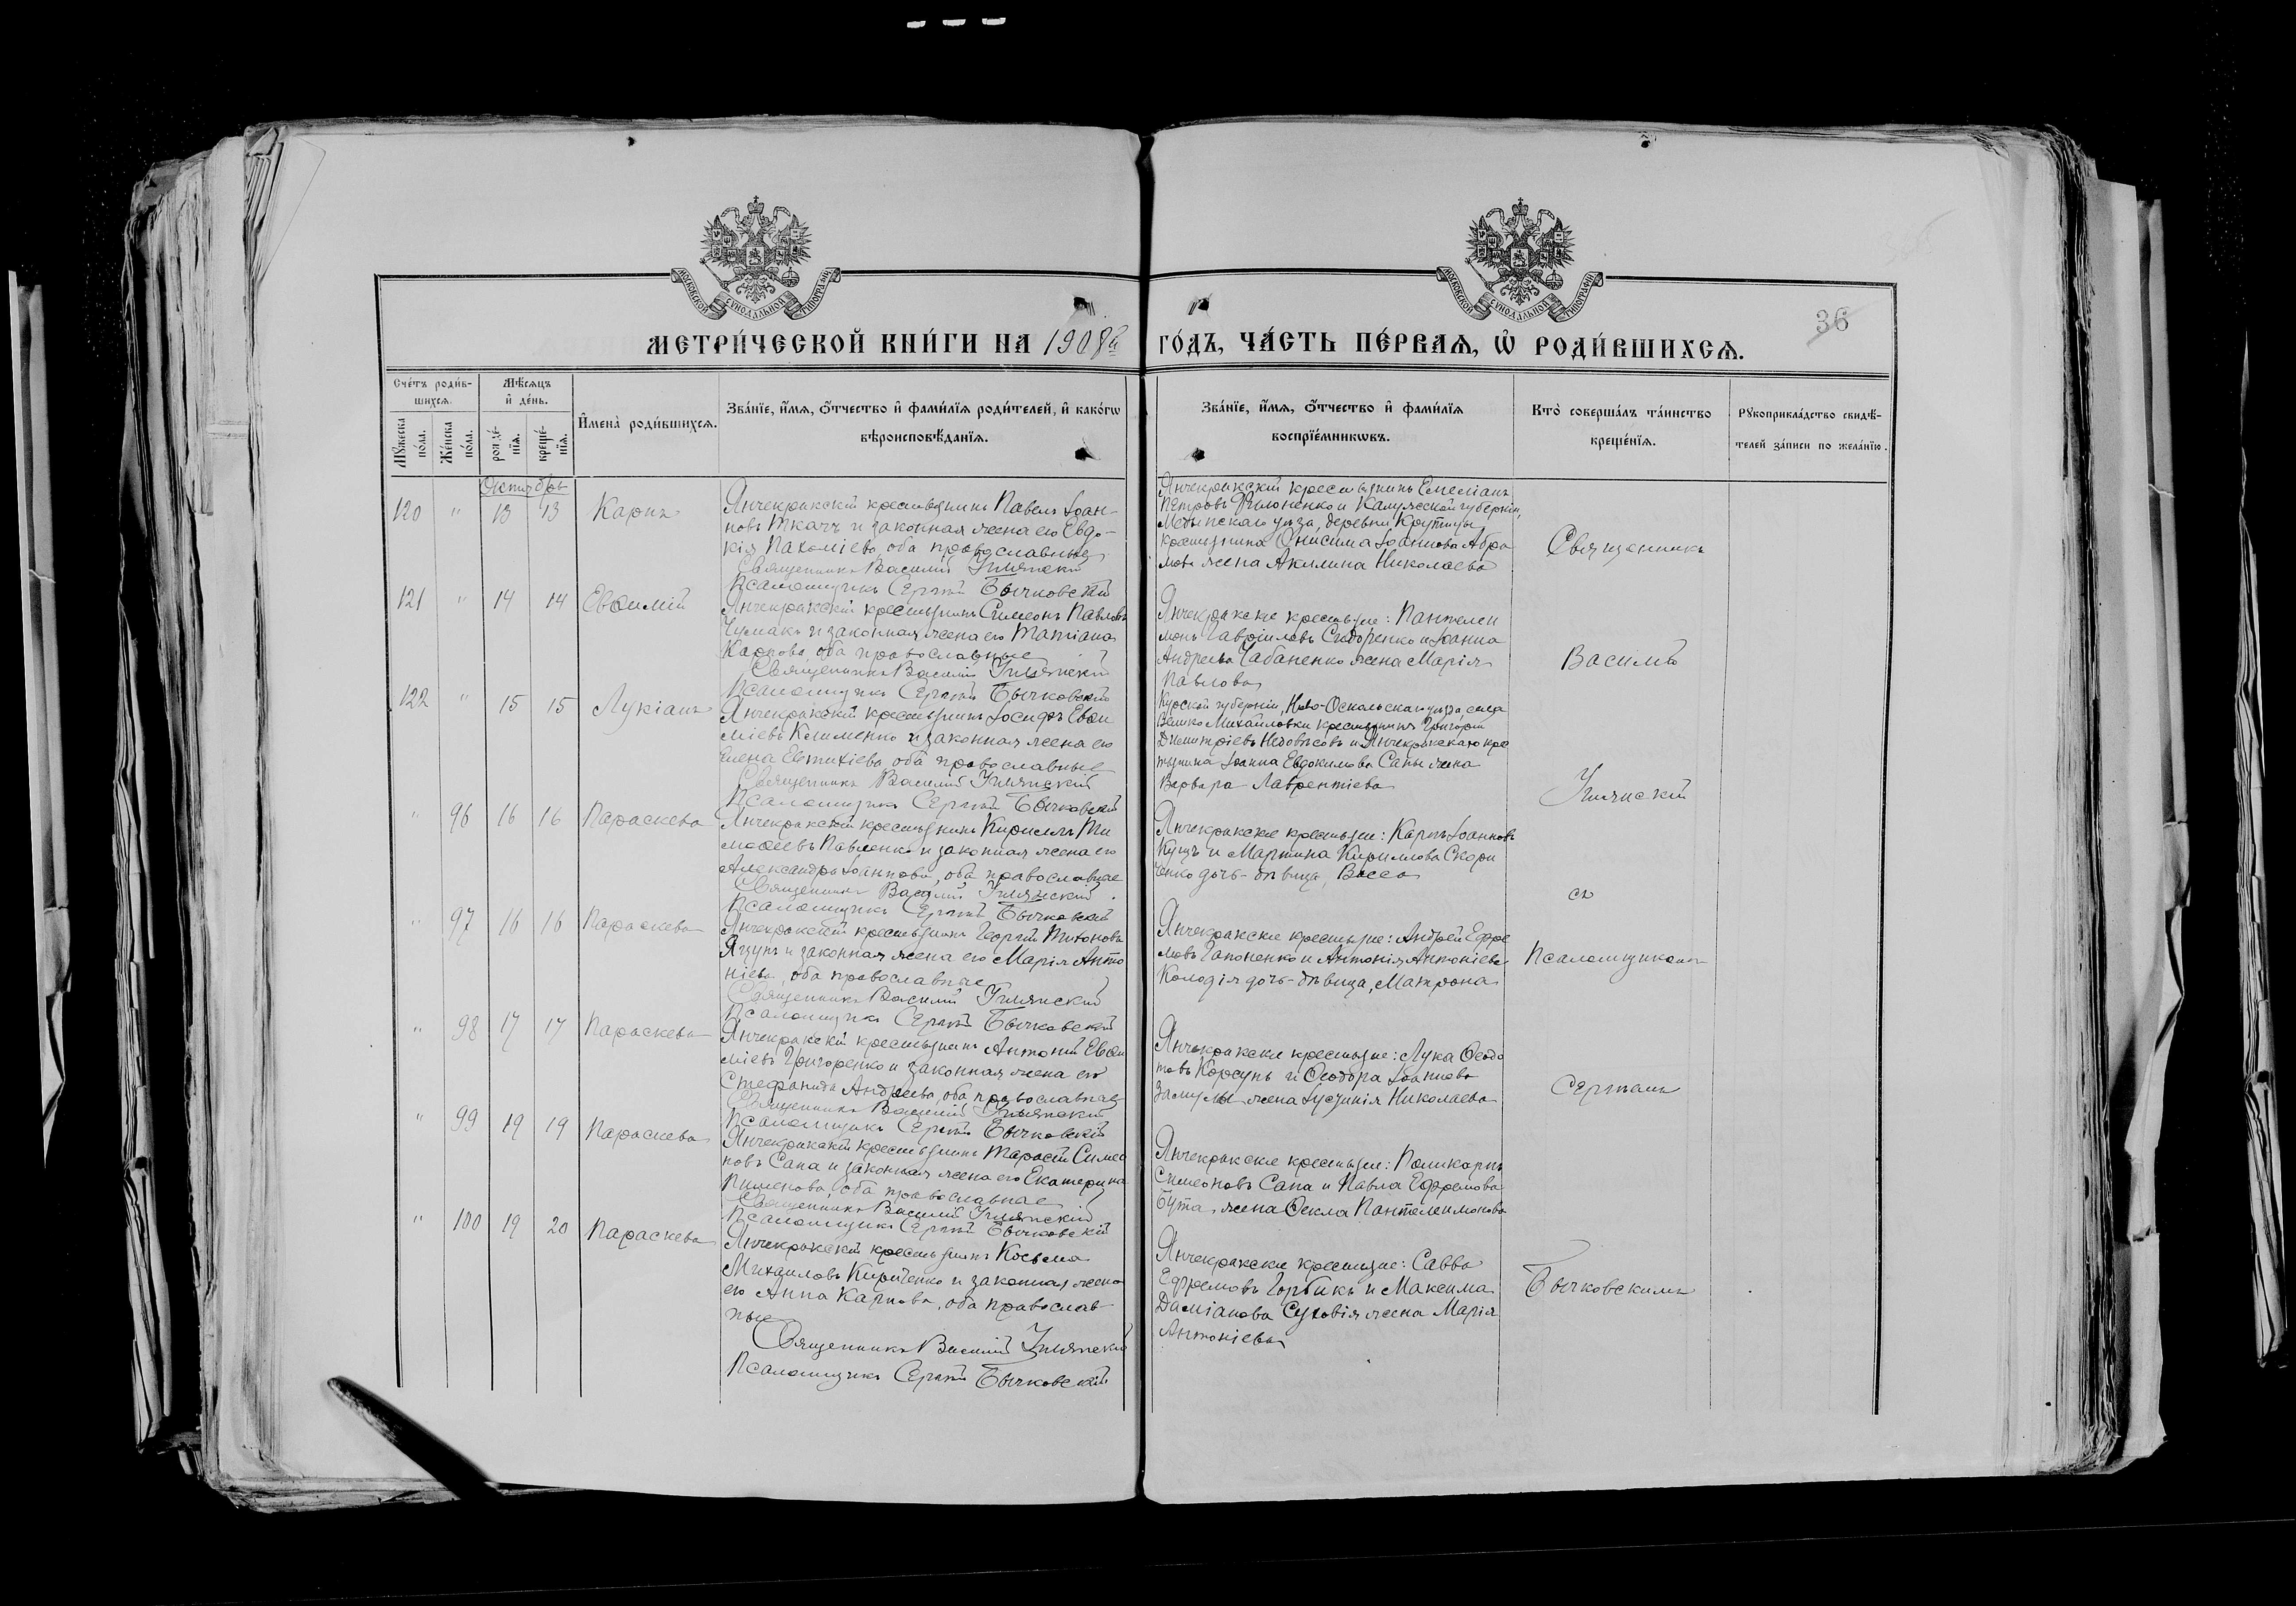 МОСКОВСКОЙ СУНОДАЛЬНОЙ ТИПОГРАФІИ
МОСКОВСКОЙ СУНОДАЛЬНОЙ ТИПОГРАФІИ
36
МЕТРИ́ЧЕСКОЙ КНИ́ГИ НА 1908й ГО́ДЪ, ЧА́СТЬ ПЕ́РВАѦ, Ѡ҆ РОДИ́ВШИХСѦ.
Сче́тъ роди́в-
шихсѧ.
Мѣ́сѧцъ
и҆ де́нь.
Мꙋ́жеска по́ла.
Же́нска по́ла.
рожде́-
нїѧ.
креще́-
нїѧ.
И҆мена̀ роди́вшихсѧ.
Зва́нїе, и҆́мѧ, ѻ҆́тчество и҆ фами́лїѧ роди́телей, и҆ како́гѡ
вѣроисповѣ́данїѧ.
Зва́нїе, и҆́мѧ, ѻ҆́тчество и҆ фами́лїѧ
воспрїе́мникѡвъ.
Кто̀ соверша́лъ та́инство
креще́нїѧ.
Рꙋкоприкла́дство свидѣ́-
телей за́писи по жела́нїю.
Октябрь
120 " 13 13 Карпъ
Янчекракскій крестьянинъ Павелъ Іоан-
новъ Ткачъ и законная жена его Евдо-
кія Пахоміева, оба православные
Священникъ Василій
Псаломщикъ Сергій Бычковскій
Янчекракскій крестьянинъ Емеліанъ
Петровъ Филоненко и Калужской губерніи,
Медынскаго уѣзда, деревни Крутицы
крестьянина Онисима Іоаннова Абра
мова жена Акилина Николаева
Священникъ
121 " 14 14 Евѳимій
Янчекракскій крестьянинъ Симеонъ Павловъ
Чумакъ и законная жена его Татіана
Карпова, оба православные
Священникъ Василій
Псаломщикъ Сергій Бычковскій
Янчекракскіе крестьяне: Пантелеи
монъ Гавріиловъ Сидоренко и Іоанна
Андреева Чабаненко жена Марія
Павлова
Василій
122 " 15 15 Лукіанъ
Янчекракскій крестьянинъ Іосифъ Евѳи
міевъ Клименко и законная жена его
Елена Евтихіева, оба православные
Священникъ Василій
Псаломщикъ Сергій Бычковскій
Курской губерніи, Ново-Оскольскаго уѣзда, села
Велико Михайловки крестьянинъ Григорій
Димитріевъ и Янчекракскаго кре
стьянина Іоанна Евдокимова Сапы жена
Варвара Лаврентіева
" 96 16 16 Параскева
Янчекракскій крестьянинъ Кириллъ Ти
моѳеевъ Павленко и законная жена его
Александра Іоаннова, оба православные
Священникъ Василій
Псаломщикъ Сергій Бычковскій
Янчекракскіе крестьяне: Карпъ Іоанновъ
Кущъ и Мартина Кириллова Скори
ченко дочь-дѣвица, Васса
съ
" 97 16 16 Параскева
Янчекракскій крестьянинъ Георгій Тихоновъ
Яцунъ и законная жена его Марія Анто
ніева, оба православные
Священникъ Василій
Псаломщикъ Сергій Бычковскій
Янчекракскіе крестьяне: Андрей Ефре
мовъ Гапоненко и Антонія Антоніева
Колодія дочь-дѣвица, Матрона
Псаломщикомъ
" 98 17 17 Параскева
Янчекракскій крестьянинъ Антоній Евѳи
міевъ Григоренко и законная жена его
Стефанида Андреева, оба православные
Священникъ Василій
Псаломщикъ Сергій Бычковскій
Янчекракскіе крестьяне: Лука Ѳеодо
товъ Корсунь и Ѳеодора Іоаннова
жена Іустинія Николаева
Сергіемъ
" 99 19 19 Параскева
Янчекракскій крестьянинъ Тарасій Симео
новъ Сапа и законная жена его Екатерина
Пименова, оба православные
Священникъ Василій
Псаломщикъ Сергій Бычковскій
Янчекракскіе крестьяне: Поликарпъ
Симеоновъ Сапа и Павла Ефремова
Бута, жена Ѳекла Пантелеимонова
" 100 19 20 Параскева
Янчекракскій крестьянинъ Косьма
Михаиловъ Кириченко и законная жена
его Анна Карпова, оба православ-
ные
Священникъ Василій
Псаломщикъ Сергій Бычковскій
Янчекракскіе крестьяне: Савва
Ефремовъ Горбикъ и Максима
Даміанова Суховія жена Марія
Антоніева
Бычковскимъ